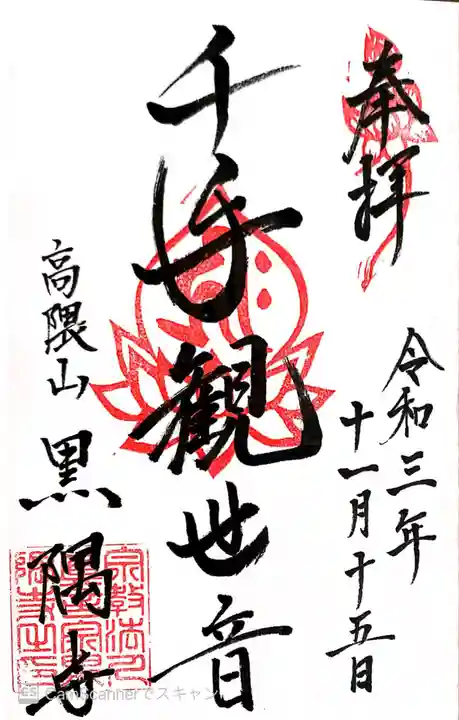 奉拝
令和三年
十一月十五日
千手観世音
高隈山
黒隅寺
CS CamScannerでスキャン